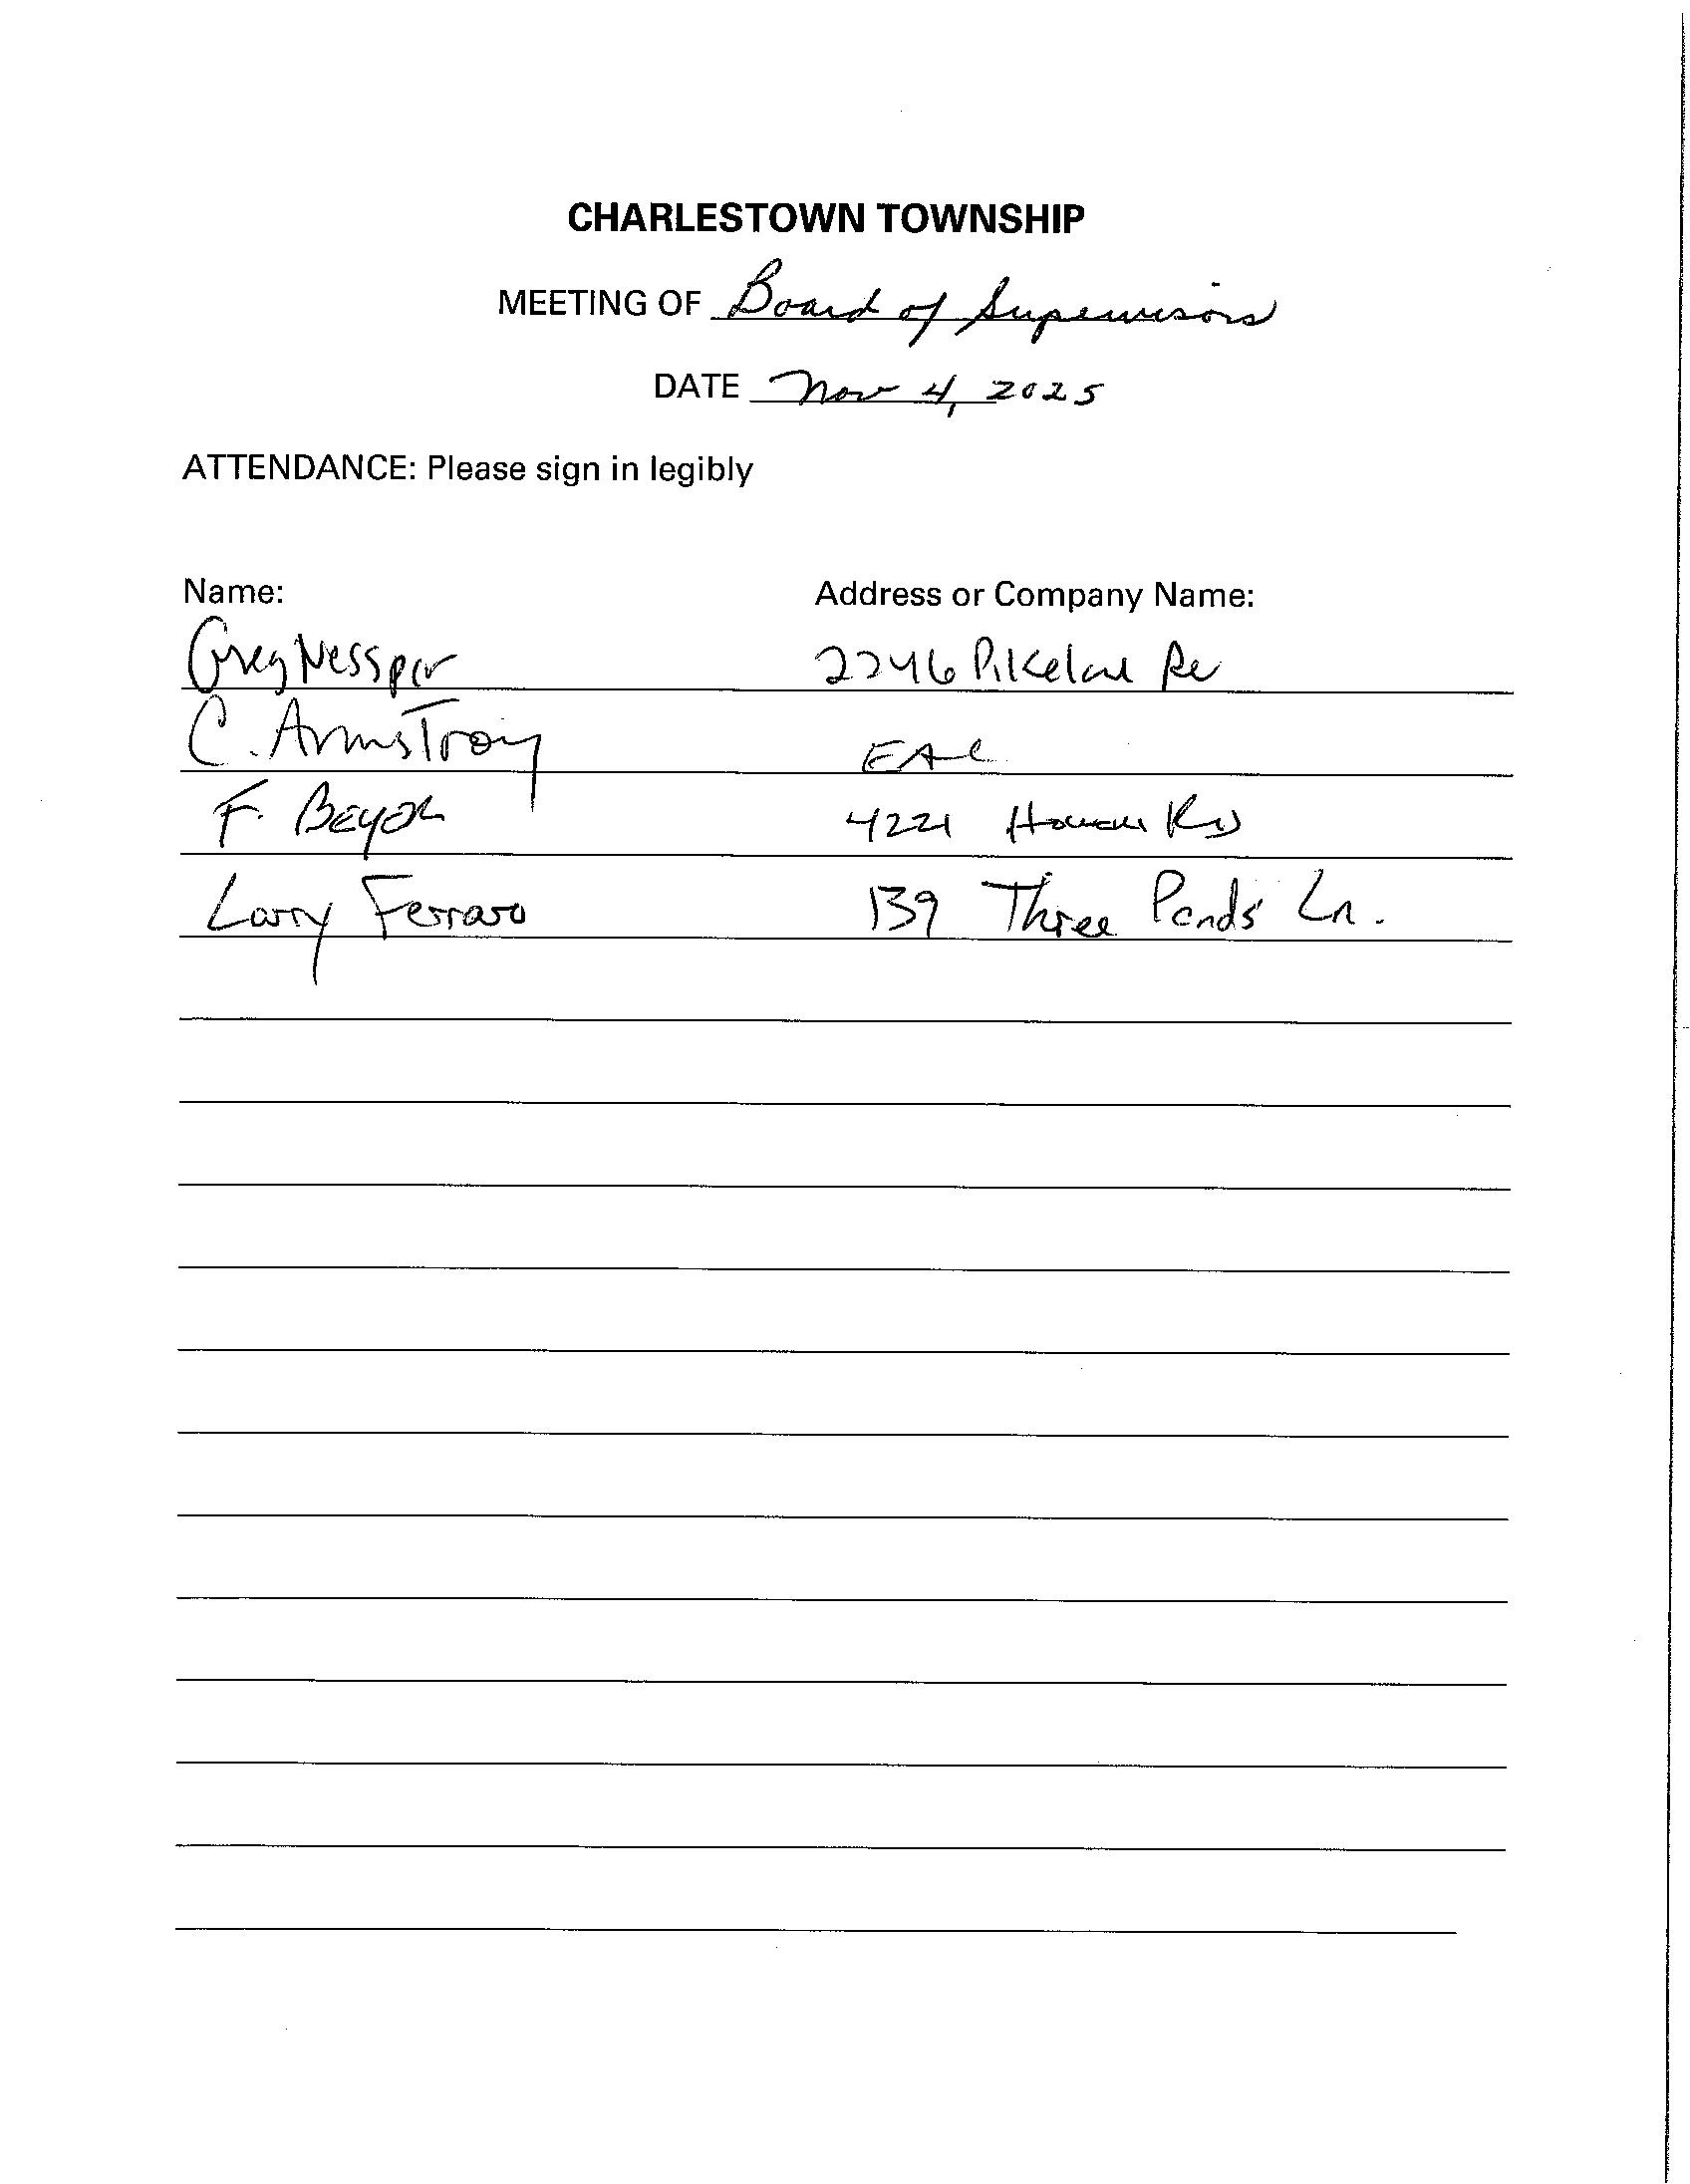 CHARLESTOWN TOWNSHIP
MEETING OF Board of Supervisors
DATE Nov 4, 2025
ATTENDANCE: Please sign in legibly
Name: Address or Company Name:
Greg Nessper 2246
C. Armstrong EAC
F. Beyer 4221 Rd
Larry Ferraro 139 Three Ponds Ln.